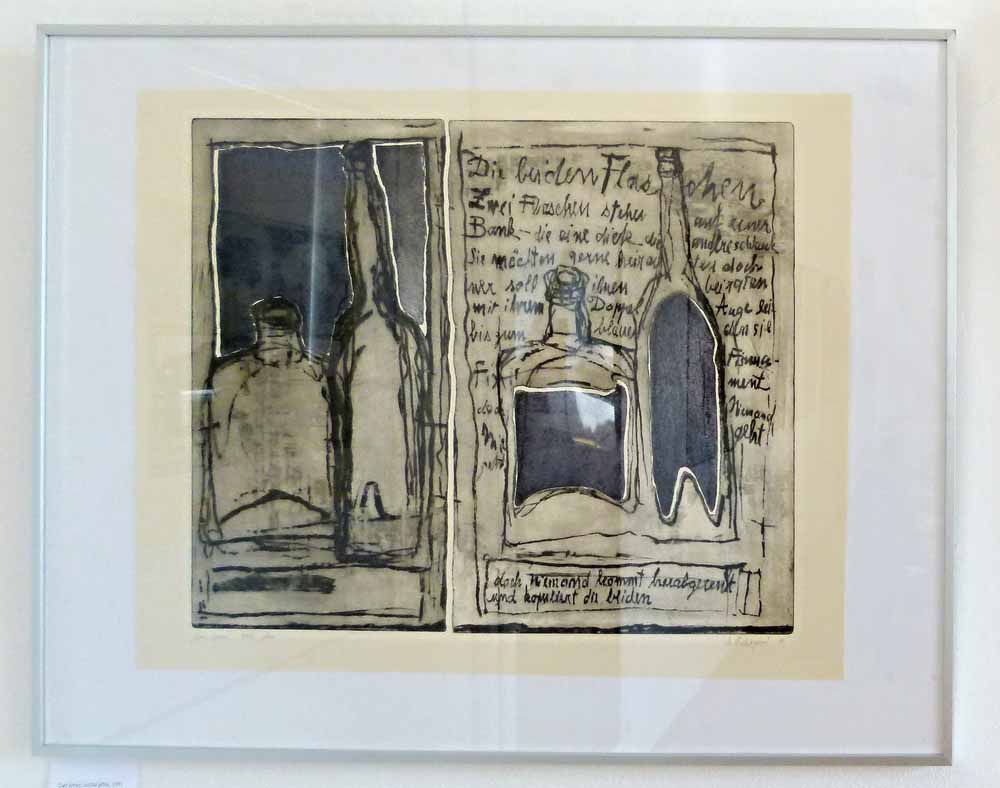 Die beiden Flaschen
Zwei Flaschen stehen auf einer
Bank – die eine dick die andre schlank
Sie möchten gerne heiraten doch
wer soll ihnen beiraten
mit ihrem Doppel Auge lei-
bis zum blauen den sie
Firma-
ment
Niemand
geht
doch Niemand kommt herabgerennt
und kopuliert die beiden